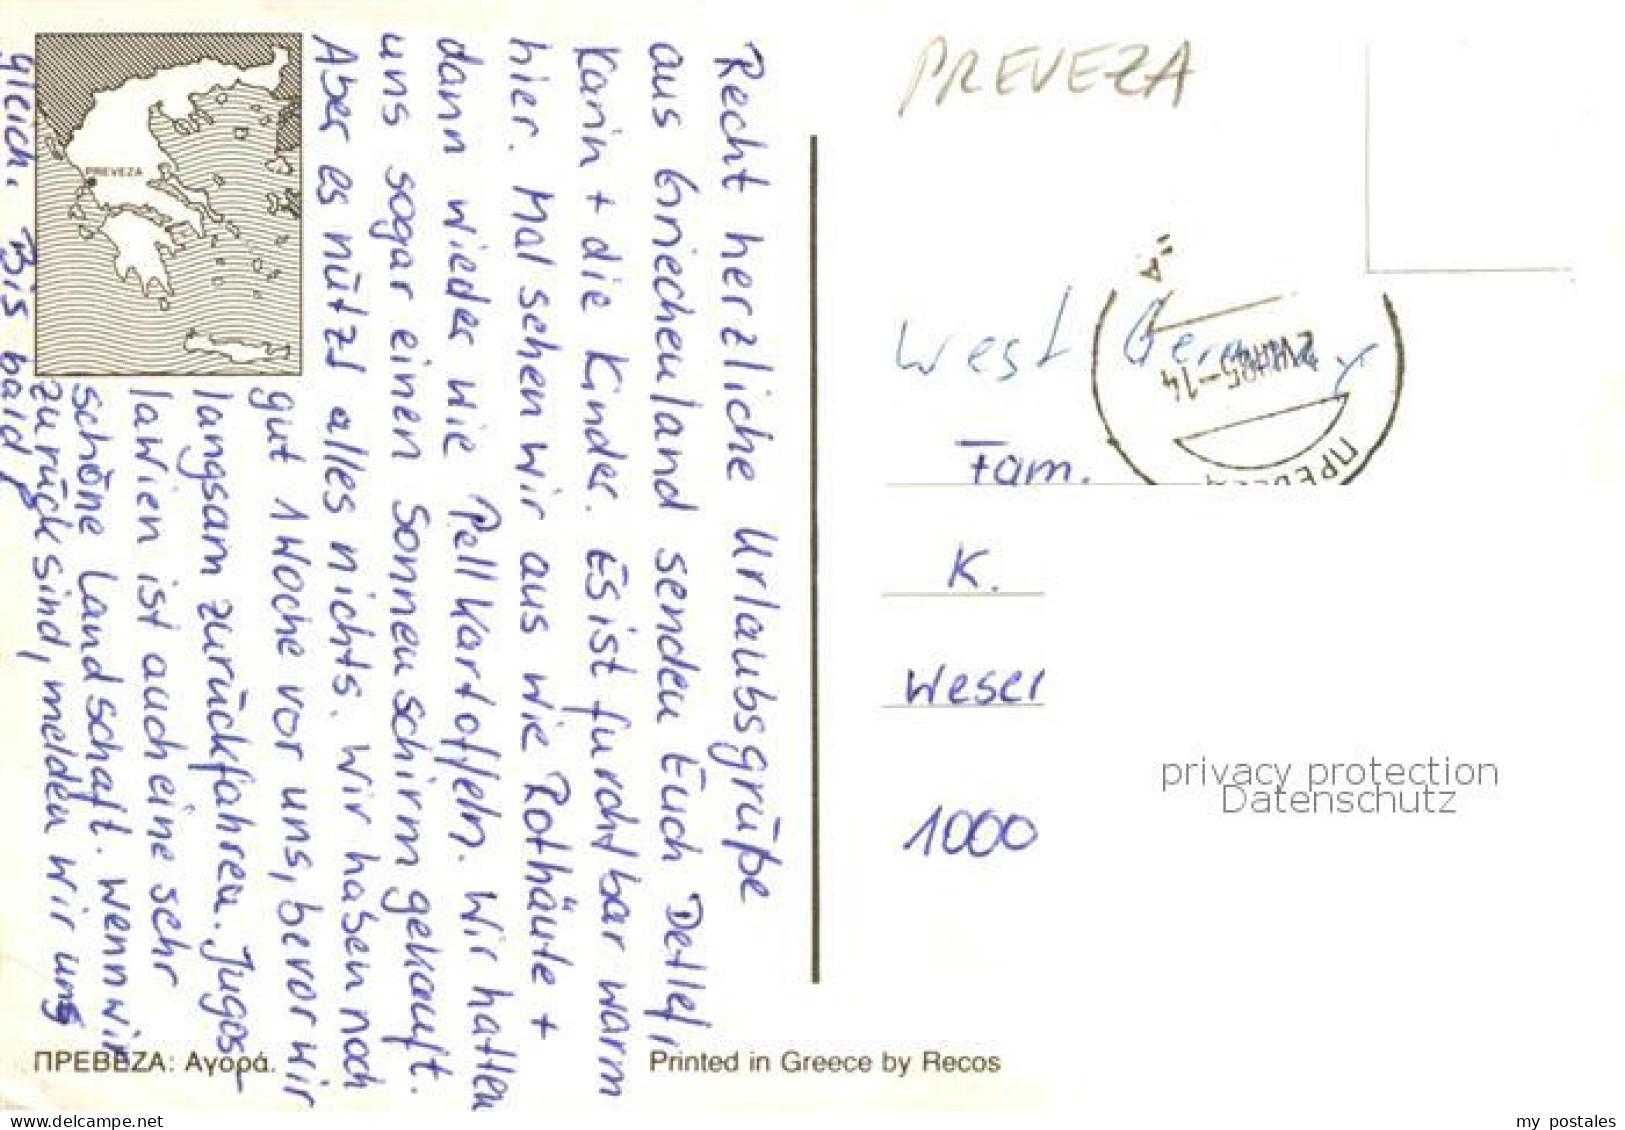 Recht herzliche Urlaubsgrüße
aus Griechenland senden Euch Detlef,
Karin + die Kinder. Es ist furchtbar warm
hier. Mal sehen wir aus wie Rothäute +
dann wieder wie Pellkartoffeln. Wir hatten
uns sogar einen Sonnenschirm gekauft.
Aber es nützt alles nichts. Wir haben noch
gut 1 Woche vor uns, bevor wir
langsam zurückfahren. Jugos-
lawien ist auch eine sehr
schöne Landschaft. Wenn wir
zurück sind, melden wir uns
gleich. Bis bald
PREVEZA
ΠΡΕΒΕΖΑ: Αγορά.
Printed in Greece by Recos
PREVEZA
West Germany
Fam.
K.
Weser
1000
privacy protection
Datenschutz
delcampe.net
my_postales